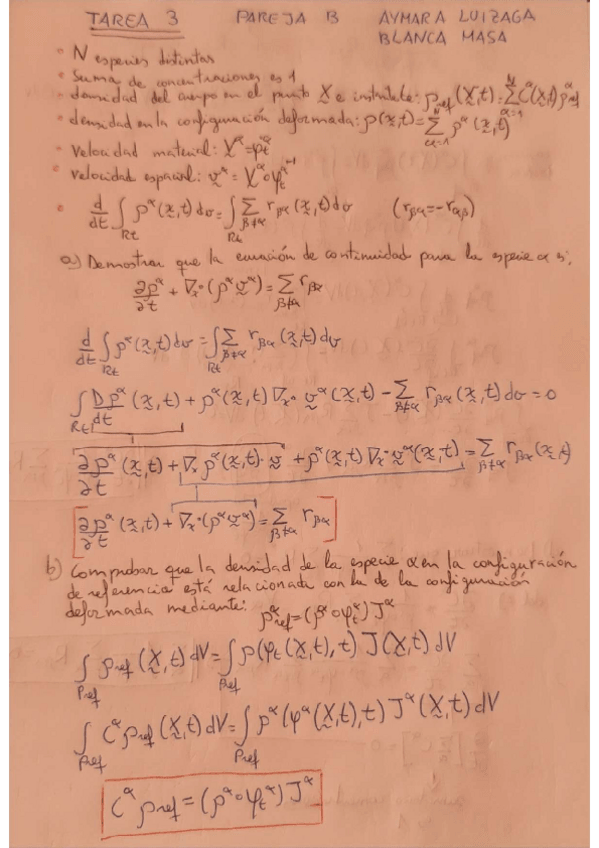 TAREA 3 PAREJA B AYMARA LUIZAGA
BLANCA MASA
• N especies distintas
• Suma de concentraciones es 1
• densidad del cuerpo en el punto X e instante t: ρref(X,t)=∑_{α=1}^{N} C^α(X,t) ρ^α_ref
• densidad en la configuración deformada: ρ(x,t)=∑_{α=1}^{N} ρ^α(x,t)
• velocidad material: V^α=φ̇_t^α
• velocidad espacial: v^α = V^α∘φ_t^{α-1}
• d/dt ∫_{Rt} ρ^α(x,t)dv=∫_{Rt} ∑_{β≠α} r_{βα}(x,t)dv (r_{βα}=-r_{αβ})
a) Demostrar que la ecuación de continuidad para la especie α es:
∂ρ^α/∂t + ∇x·(ρ^α v^α)=∑_{β≠α} r_{βα}
d/dt ∫_{Rt} ρ^α(x,t)dv=∫_{Rt} ∑_{β≠α} r_{βα}(x,t)dv
∫_{Rt} Dρ^α/dt (x,t)+ρ^α(x,t)∇x·v^α(x,t)-∑_{β≠α} r_{βα}(x,t)dv=0
∂ρ^α/∂t (x,t)+∇x ρ^α(x,t)·v+ρ^α(x,t)∇x·v^α(x,t)=∑_{β≠α} r_{βα}(x,t)
[∂ρ^α/∂t (x,t)+∇x·(ρ^α v^α)=∑_{β≠α} r_{βα}]
b) Comprobar que la densidad de la especie α en la configuración
de referencia está relacionada con la de la configuración
deformada mediante: ρ^α_ref=(ρ^α∘φ_t^α)J^α
∫_{Rref} ρref(X,t)dV=∫_{Rref} ρ(φt(X,t),t)J(X,t)dV
∫_{Rref} C^α ρref(X,t)dV=∫_{Rref} ρ^α(φ^α(X,t),t)J^α(X,t)dV
C^α ρref=(ρ^α∘φ_t^α)J^α